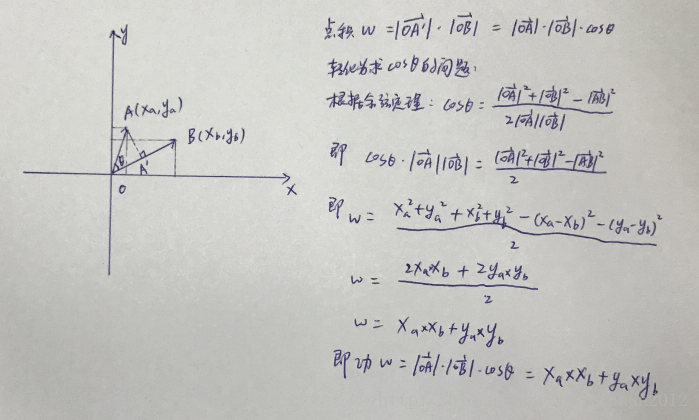 y
A(xa,ya)
B(xb,yb)
θ
A'
O
x
点积 W = |OA'| · |OB| = |OA|·|OB|·cosθ
转化为求cosθ的问题.
根据余弦定理: cosθ = (|OA|²+|OB|²-|AB|²) / 2|OA||OB|
即 cosθ·|OA||OB| = (|OA|²+|OB|²-|AB|²) / 2
即 W = (xa²+ya²+xb²+yb²-(xa-xb)²-(ya-yb)²) / 2
W = (2xa×xb + 2ya×yb) / 2
W = xa×xb + ya×yb
即功 W = |OA|·|OB|·cosθ = xa×xb + ya×yb